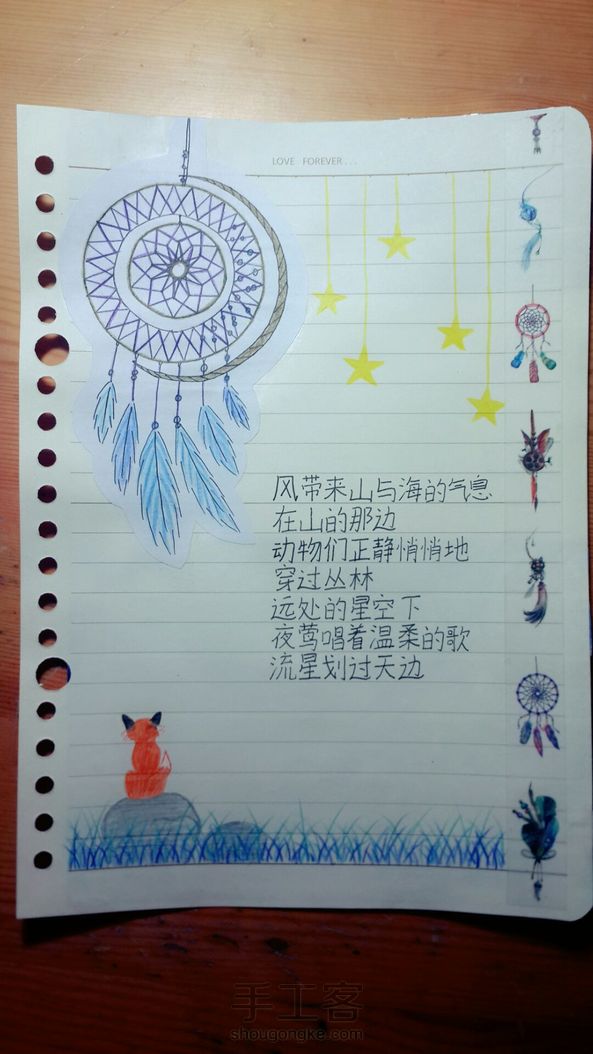 LOVE FOREVER...
风带来山与海的气息
在山的那边
动物们正静悄悄地
穿过丛林
远处的星空下
夜莺唱着温柔的歌
流星划过天边
手工客
shougongke.com